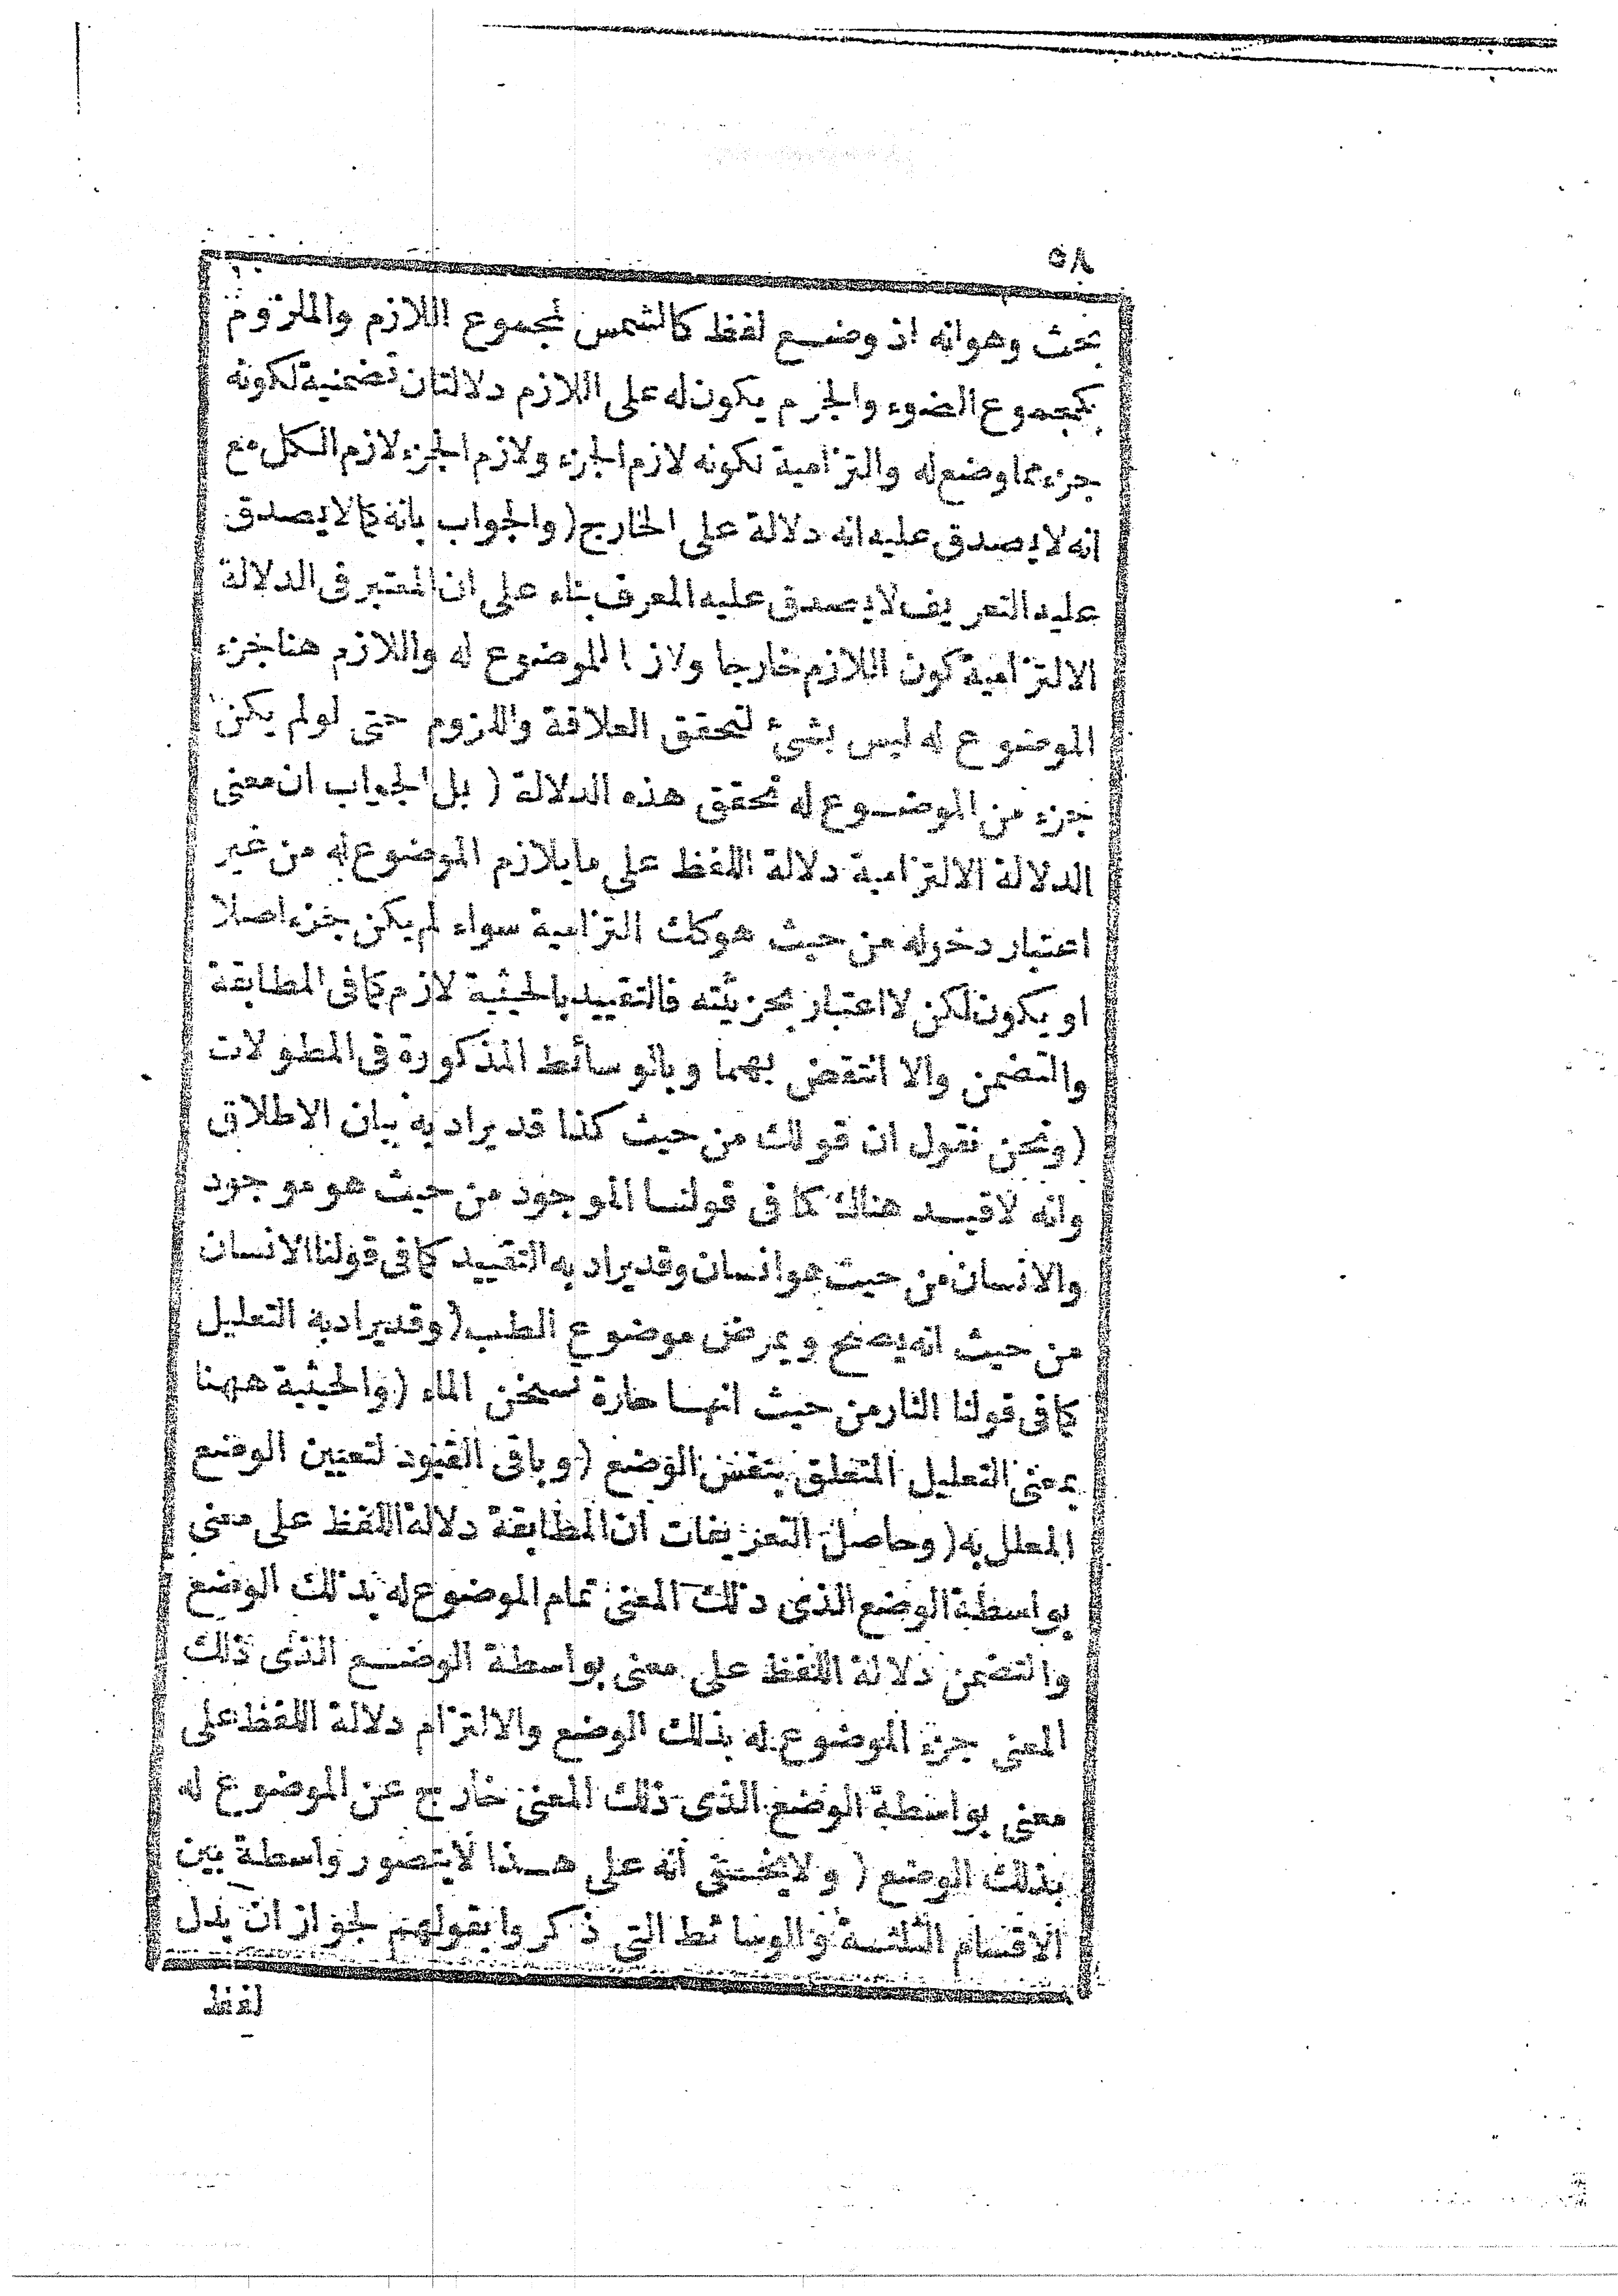 ٥٨
بحث وهو انه اذ وضع لفظ كالشمس لمجموع اللازم والملزوم
كمجموع الضوء والجرم يكون له على اللازم دلالتان تضمنية لكونه
جزء ما وضع له والتزامية لكونه لازم الجزء ولازم الجزء لازم الكل مع
انه لا يصدق عليه انه دلالة على الخارج (والجواب بانه كما لا يصدق
عليه التعريف لا يصدق عليه المعرف بناء على ان المعتبر فى الدلالة
الالتزامية كون اللازم خارجا ولازما للموضوع له واللازم هنا جزء
الموضوع له ليس بشئ لتحقق العلاقة واللزوم حتى لو لم يكن
جزء من الموضوع له تحقق هذه الدلالة (بل الجواب ان معنى
الدلالة الالتزامية دلالة اللفظ على ما يلازم الموضوع له من غير
اعتبار دخوله من حيث هو كك التزامية سواء لم يكن جزء اصلا
او يكون لكن لا اعتبار بجزئيته فالتقييد بالحيثية لازم كما فى المطابقة
والتضمن والا انتقض بهما وبالوسائط المذكورة فى المطولات
(ونحن نقول ان قولك من حيث كذا قد يراد به بيان الاطلاق
وانه لا قيد هناك كما فى قولنا الموجود من حيث هو موجود
والانسان من حيث هو انسان وقد يراد به التقييد كما فى قولنا الانسان
من حيث انه يصح ويمرض موضوع الطب (وقد يراد به التعليل
كما فى قولنا النار من حيث انها حارة تسخن الماء (والحيثية ههنا
بمعنى التعليل المتعلق بنفس الوضع (وباقى القيود لتعيين الوضع
المعلل به (وحاصل التعريفات ان المطابقة دلالة اللفظ على معنى
بواسطة الوضع الذى ذلك المعنى تمام الموضوع له بذلك الوضع
والتضمن دلالة اللفظ على معنى بواسطة الوضع الذى ذلك
المعنى جزء الموضوع له بذلك الوضع والالتزام دلالة اللفظ على
معنى بواسطة الوضع الذى ذلك المعنى خارج عن الموضوع له
بذلك الوضع (ولا يخفى انه على هذا لا يتصور واسطة بين
الاقسام الثلثة والوسائط التى ذكروا بقولهم لجواز ان يدل
لفظ